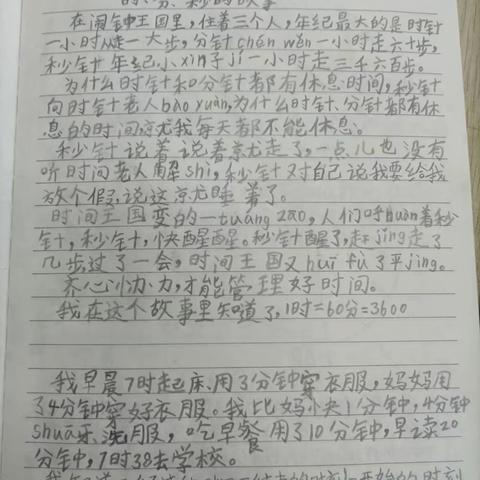 时、分、秒的故事
在闹钟王国里,住着三个人,年纪最大的是时针
一小时走一大步,分针chén wěn一小时走六十步,
秒针年纪小xìng子jí一小时走三千六百步。
为什么时针和分针都有休息时间,秒针
向时针老人bào yuàn,为什么时针、分针都有休
息的时间京尤我每天都不能休息。
秒针说着说着京尤走了,一点儿也没有
听时间老人解shì,秒针对自己说我要给我
放个假,说这京尤睡着了。
时间王国变的一tuáng zāo,人们呼huàn着秒
针,秒针,快醒醒。秒针醒了,赶jǐng走了
几步过了一会,时间王国又huī fù了平jìng。
齐心协力,才能管理好时间。
我在这个故事里知道了,1时=60分=3600
我早晨7时起床,用了3分钟穿衣服,妈妈用
了4分钟穿好衣服。我比妈快1分钟,4分钟
shuā牙洗服,吃早餐用了10分钟,早读20
分钟,7时38去学校。